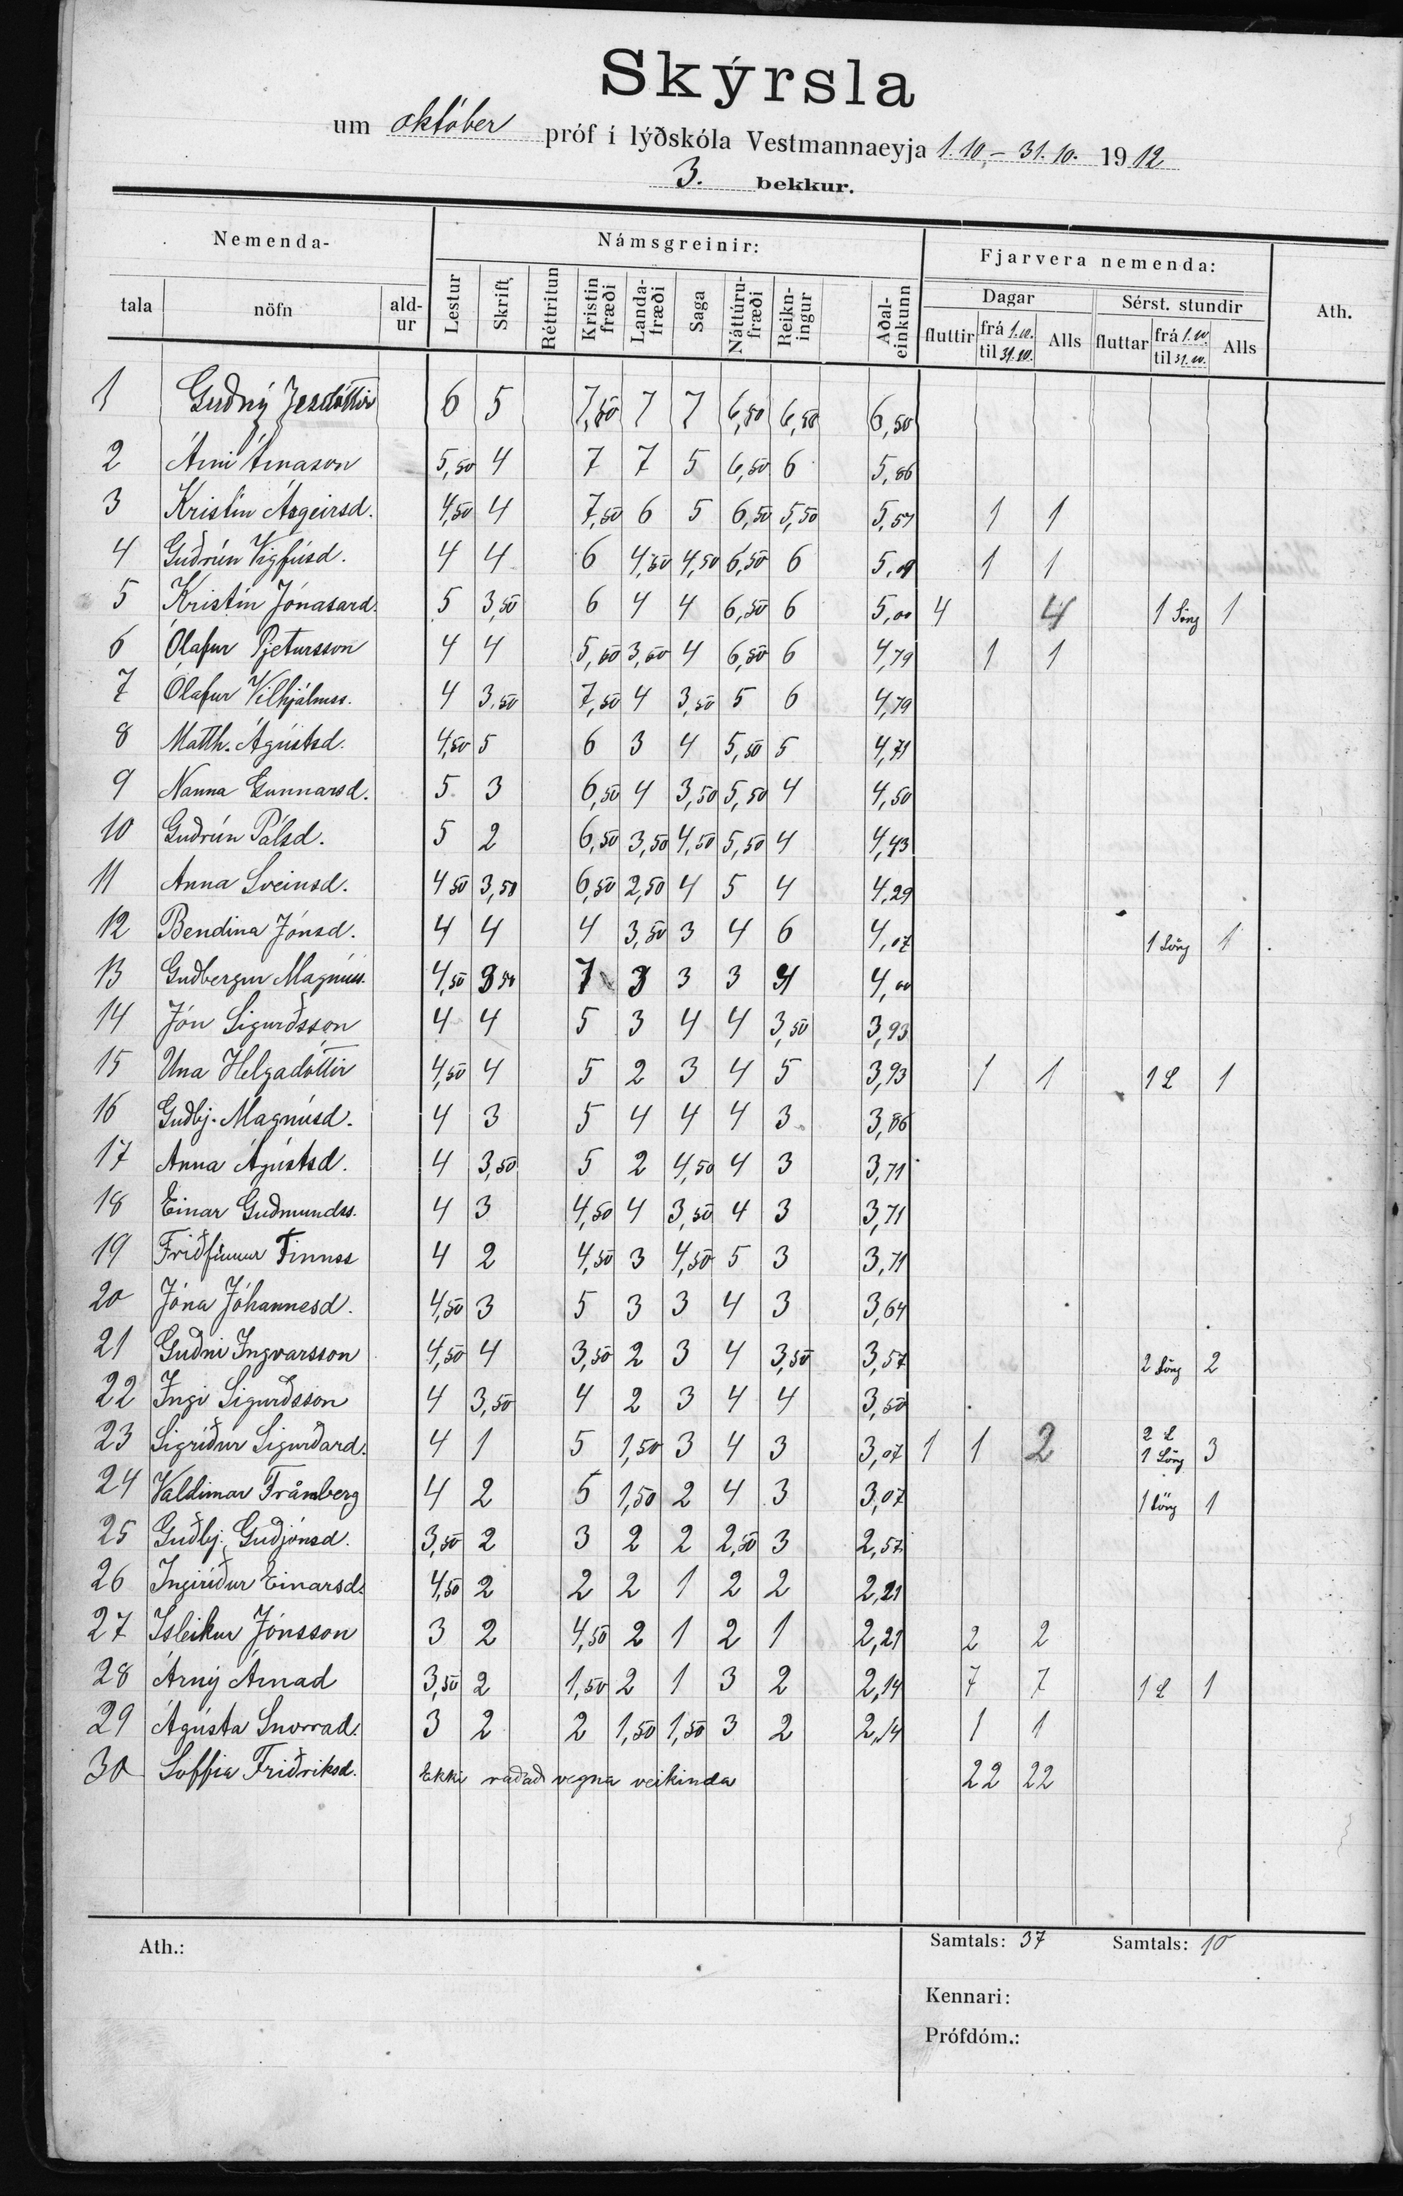 Skýrsla
um október próf í lýðskóla Vestmannaeyja 1.10.–31.10. 1912
3. bekkur.
Nemenda- Námsgreinir: Fjarvera nemenda: Ath.
tala nöfn ald-ur Lestur Skrift Réttritun Kristin fræði Landa-fræði Saga Náttúru-fræði Reikn-ingur Aðal-einkunn Dagar Sérst. stundir
fluttir frá 1.10. til 31.10. Alls fluttar frá 1.10. til 31.10. Alls
1 Guðný Jesdóttir 6 5 7,50 7 7 6,50 6,50 6,50
2 Árni Árnason 5,50 4 7 7 5 6,50 6 5,86
3 Kristín Ásgeirsd. 4,50 4 7,50 6 5 6,50 5,50 5,57 1 1
4 Guðrún Vigfúsd. 4 4 6 4,50 4,50 6,50 6 5,07 1 1
5 Kristín Jónasard. 5 3,50 6 4 4 6,50 6 5,00 4 4 1 Söng 1
6 Ólafur Pjetursson 4 4 5,50 3,50 4 6,50 6 4,79 1 1
7 Ólafur Vilhjálmss. 4 3,50 7,50 4 3,50 5 6 4,79
8 Matth. Ágústsd. 4,50 5 6 3 4 5,50 5 4,71
9 Nanna Gunnarsd. 5 3 6,50 4 3,50 5,50 4 4,50
10 Guðrún Pálsd. 5 2 6,50 3,50 4,50 5,50 4 4,43
11 Anna Sveinsd. 4 50 3,50 6,50 2,50 4 5 4 4,29
12 Bendina Jónsd. 4 4 4 3,50 3 4 6 4,07 1 Söng 1
13 Guðbergur Magnúss. 4,50 3 50 7 3 3 3 4 4,00
14 Jón Sigurðsson 4 4 5 3 4 4 3,50 3,93
15 Una Helgadóttir 4,50 4 5 2 3 4 5 3,93 1 1 1 L 1
16 Guðbj. Magnúsd. 4 3 5 4 4 4 3 3,86
17 Anna Ágústsd. 4 3,50 5 2 4,50 4 3 3,71
18 Einar Guðmundss. 4 3 4,50 4 3,50 4 3 3,71
19 Friðfinnur Finnss 4 2 4,50 3 4,50 5 3 3,71
20 Jóna Jóhannesd. 4,50 3 5 3 3 4 3 3,64
21 Guðni Ingvarsson 4,50 4 3,50 2 3 4 3,50 3,57 2 Söng 2
22 Ingi Sigurðsson 4 3,50 4 2 3 4 4 3,50
23 Sigríður Sigurðard. 4 1 5 1,50 3 4 3 3,07 1 1 2 2 L 1 Söng 3
24 Valdimar Tranberg 4 2 5 1,50 2 4 3 3,07 1 Söng 1
25 Guðbj. Guðjónsd. 3,50 2 3 2 2 2,50 3 2,57
26 Ingiríður Einarsd. 4,50 2 2 2 1 2 2 2,21
27 Ísleikur Jónsson 3 2 4,50 2 1 2 1 2,21 2 2
28 Árný Árnad 3,50 2 1,50 2 1 3 2 2,14 7 7 1 L 1
29 Ágústa Snorrad. 3 2 2 1,50 1,50 3 2 2,14 1 1
30 Soffia Friðriksd. Ekki raðað vegna veikinda 22 22
Ath.: Samtals: 37 Samtals: 10
Kennari:
Prófdóm.: